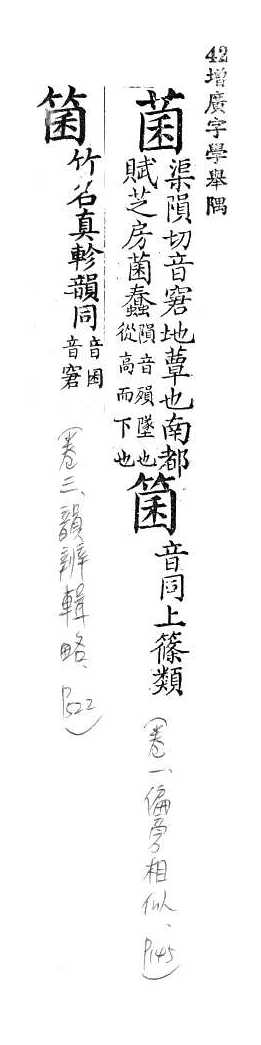 42增廣字學舉隅
菌
渠隕切音窘地蕈也南都
賦芝房菌蠢
隕音殞墜也
從高而下也
箘
音同上篠類
(卷一、偏旁相似、P145)
箘
竹名真軫韻同
音囷
音窘
(卷三、韻辨輯略、P522)